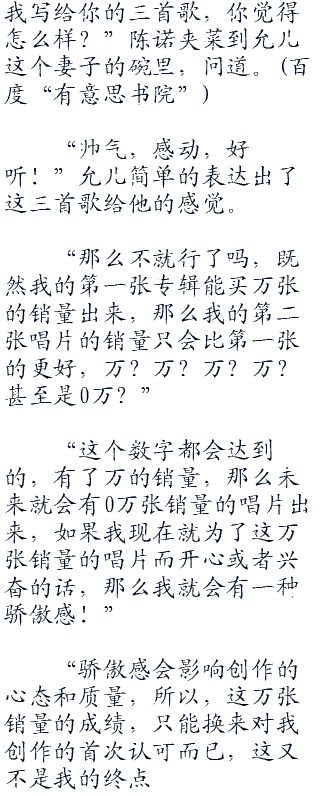 我写给你的三首歌，你觉得
怎么样？”陈诺夹菜到允儿
这个妻子的碗里，问道。(百
度“有意思书院”)
“帅气，感动，好
听！”允儿简单的表达出了
这三首歌给他的感觉。
“那么不就行了吗，既
然我的第一张专辑能买万张
的销量出来，那么我的第二
张唱片的销量只会比第一张
的更好，万？万？万？万？
甚至是0万？”
“这个数字都会达到
的，有了万的销量，那么未
来就会有0万张销量的唱片出
来，如果我现在就为了这万
张销量的唱片而开心或者兴
奋的话，那么我就会有一种
骄傲感！”
“骄傲感会影响创作的
心态和质量，所以，这万张
销量的成绩，只能换来对我
创作的首次认可而已，这又
不是我的终点